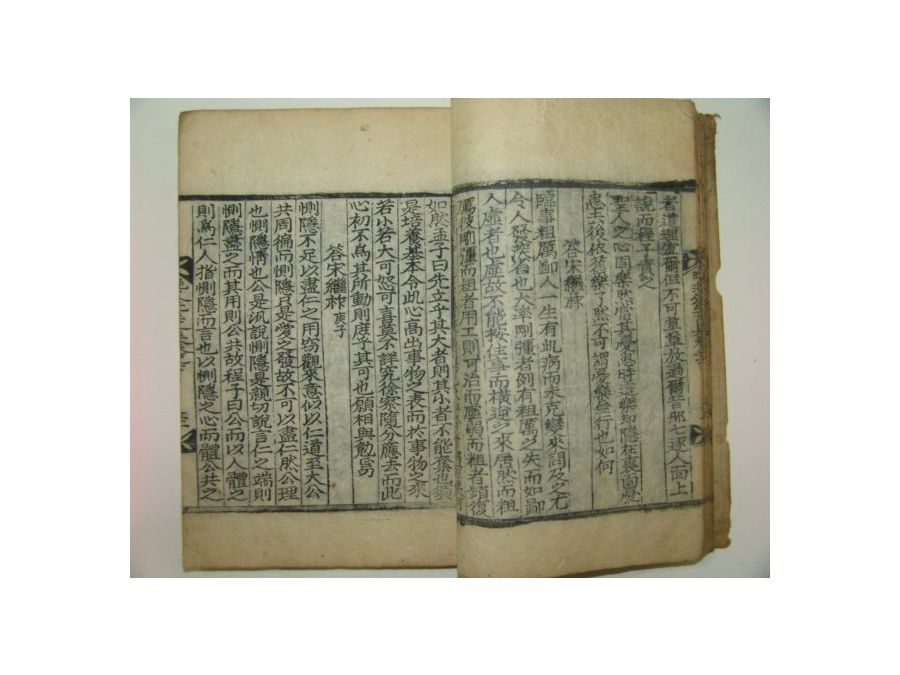 者道理當爾但不可草草放過爾昔邢七逐人面上
說而程子責之
聖人之心固樂然當其憂患時這樂却隱在裏面憂
患去後依舊樂了然不可謂憂樂並行也如何
答宋繼祚
臨事粗厲鄙人一生有此病而未克變來問及此尤
令人發深省也大率剛彊者例有粗厲之失而如鄙
人虛者也虛故不能按住事而橫逆之來居然而粗
厲彼剛彊而粗者用工則可治而虛弱而粗者頭復
如然孟子曰先立乎其大者則其小者不能奪也
是培養基本令此心高出事物之表而於事物之來
若小若大可怒可喜莫不詳究徐察隨分應去而此
心初不爲其所動則庶乎其可也願相與勉焉
答宋繼祚 庚子
惻隱不足以盡仁之用竊觀來意似以仁道至大公
共周徧而惻隱只是愛之發故不可以盡仁然公理
也惻隱情也公是汎說惻隱是親切說言仁之端則
惻隱盡之而其用則公共故程子曰公而以人體之
則爲仁人指惻隱而言也以惻隱之心而體公共之